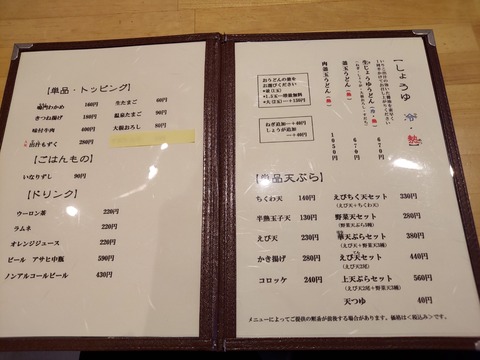 【単品・トッピング】
鳴門わかめ 160円
きつね揚げ 180円
味付牛肉 400円
出汁もずく 280円
生たまご 60円
温泉たまご 90円
大根おろし 80円
【ごはんもの】
いなりずし 90円
【ドリンク】
ウーロン茶 220円
ラムネ 220円
オレンジジュース 220円
ビール アサヒ中瓶 590円
ノンアルコールビール 430円
【しょうゆ 冷・熱】
生じょうゆうどん(冷・熱) 670円
釜玉うどん(熱) 670円
肉釜玉うどん(熱) 1050円
おうどんの量を
お選びください
ねぎ追加―+40円
しょうが追加
―+40円
【単品天ぷら】
ちくわ天 140円
半熟玉子天 130円
えび天 230円
かき揚げ 280円
コロッケ 240円
えびちく天セット 330円
(えび天+ちくわ天)
野菜天セット 280円
(野菜天ぷら3種)
華天ぷらセット 380円
(えび天+野菜天3種)
えび天セット 440円
(えび天2尾)
上天ぷらセット 560円
(えび天2尾+野菜天3種)
天つゆ 40円
メニューによってご提供の順番が前後する場合があります。価格は<税込み>です。